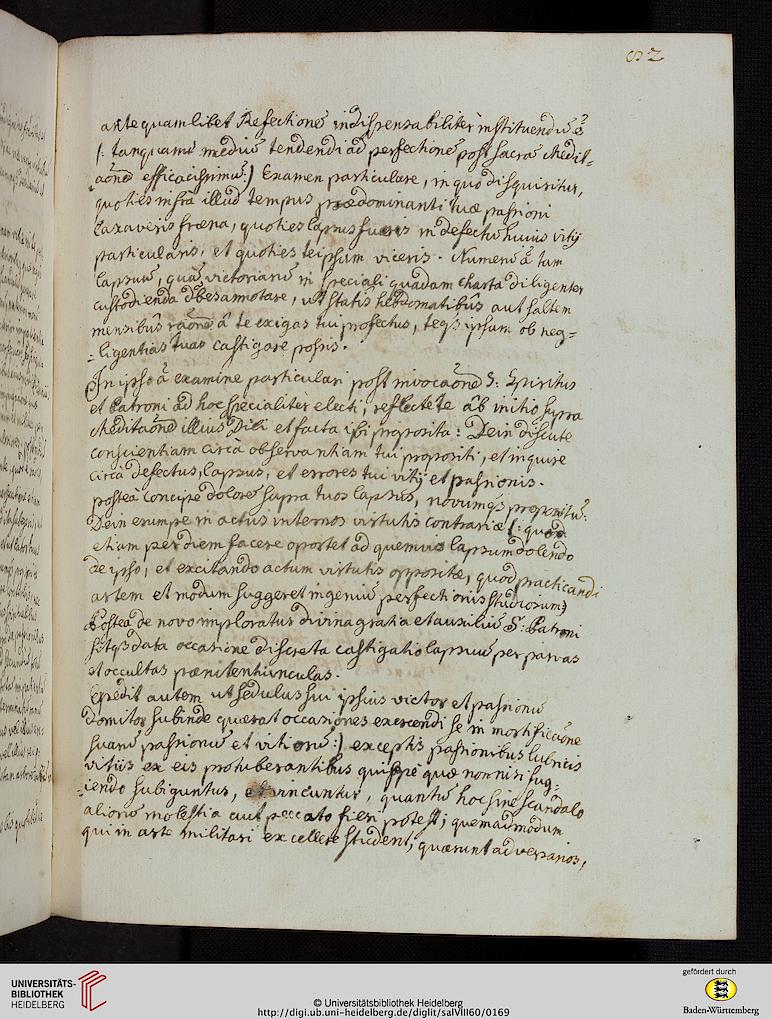 82
ante quamlibet Refectionē indispensabiliter instituendū ē
(: tanquamē mediū tendendi ad perfectionē post sacrā Medit-
aōnē efficacissimū:) Examen particulare, in quo disquiritur,
quoties infra illud tempus prædominanti tuæ passioni
laxaveris fræna, quoties lapsus fueris in defectū huius vitij
particularis, et quoties teipsum viceris. Numerū à tam
lapsuū, quā victoriarū in speciali quadam charta diligenter
custodienda debes annotare, ut statis hebdomatibus aut saltem
mensibus raōnē â te exigas tui profectus, teqs ipsum ob neg=
=ligentias tuas castigare possis.
In ipso â examine particulari post invocaōnē S: Spiritus
et Patroni ad hoc specialiter electi, reflecte te ab initio supra
Meditaōnē illius Diei et facta ibi proposita: Dein discute
conscientiam circa observantiam tui propositi, et inquire
circa defectus, lapsus, et errores tui vitij et passionis.
postea concipe dolorē supra tuos lapsus, novumqs propositū.
Dein erumpe in actus internos virtutis contrariæ (: quod
etiam per diem facere oportet ad quemvis lapsum dolendo
de ipso, et excitando actum virtutis oppositæ, quod practicandi
artem et modum suggeret ingeniū perfectionis studiosum:)
Postea de novo imploratur divina gratia et auxiliū S: Patroni
sitqs data occasione discreta castigatio lapsuū per parvas
et occultas pœnitentiunculas.
Expedit autem ut sedulus sui ipsius victor et passionū
Domitor subinde quærat occasiones exercendi se in mortificaōne
suarū passionū et vitiorū:) exceptis passionibus lubricis
vitiis ex eis protuberantibus quippe quæ non nisi fug-
=iendo subiguntur, et vincuntur, quantū hoc sine scandalo
aliorū molestia aut peccato fieri potest; quemadmodum
qui in arte militari excellere student, quærunt adversarios,
UNIVERSITÄTS-
BIBLIOTHEK
HEIDELBERG
© Universitätsbibliothek Heidelberg
http://digi.ub.uni-heidelberg.de/diglit/salVIII60/0169
gefördert durch
Baden-Württemberg